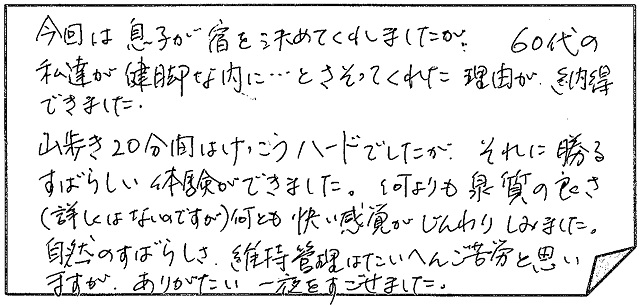 今回は息子が宿を決めてくれましたが、60代の
私達が健脚な内に…とさそってくれた理由が、納得
できました。
山歩き20分間はけっこうハードでしたが、それに勝る
すばらしい体験ができました。何よりも泉質の良さ
(詳しくはないのですが)何とも快い感覚がじんわりしみました。
自然のすばらしさ、維持管理はたいへんご苦労と思い
ますが、ありがたい一夜をすごせました。